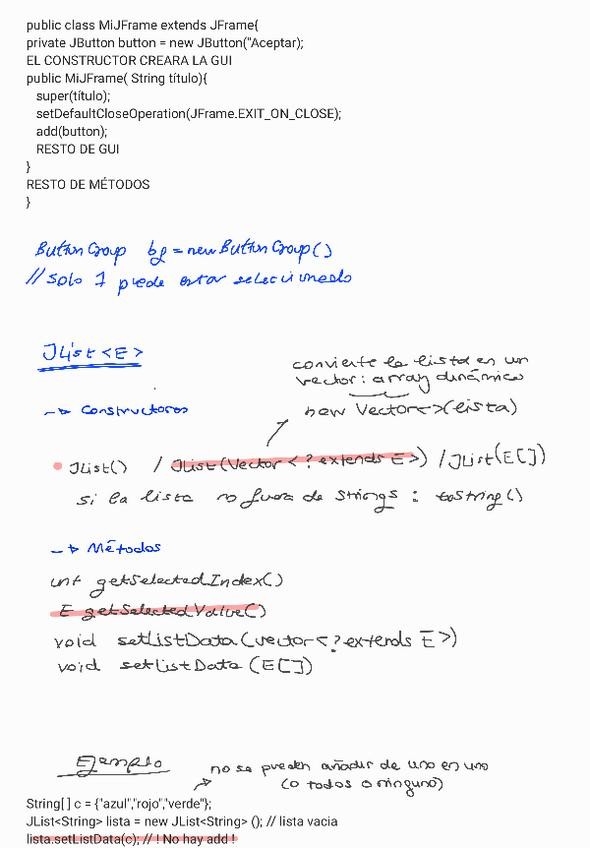 public class MiJFrame extends JFrame{
private JButton button = new JButton("Aceptar);
EL CONSTRUCTOR CREARA LA GUI
public MiJFrame( String título){
super(título);
setDefaultCloseOperation(JFrame.EXIT_ON_CLOSE);
add(button);
RESTO DE GUI
}
RESTO DE MÉTODOS
}
ButtonGroup bg = new ButtonGroup()
// solo 1 puede estar seleccionado
JList<E>
convierte la lista en un
vector: array dinámico
→ Constructores
new Vector<>(lista)
• JList() / JList(Vector<? extends E>) / JList(E[])
si la lista no fuera de Strings : toString()
→ Métodos
int getSelectedIndex()
E getSelectedValue()
void setListData(vector<? extends E>)
void setListData (E[])
Ejemplo
no se pueden añadir de uno en uno
(o todos o ninguno)
String[ ] c = {"azul","rojo","verde"};
JList<String> lista = new JList<String> (); // lista vacia
lista.setListData(c); // ! No hay add !